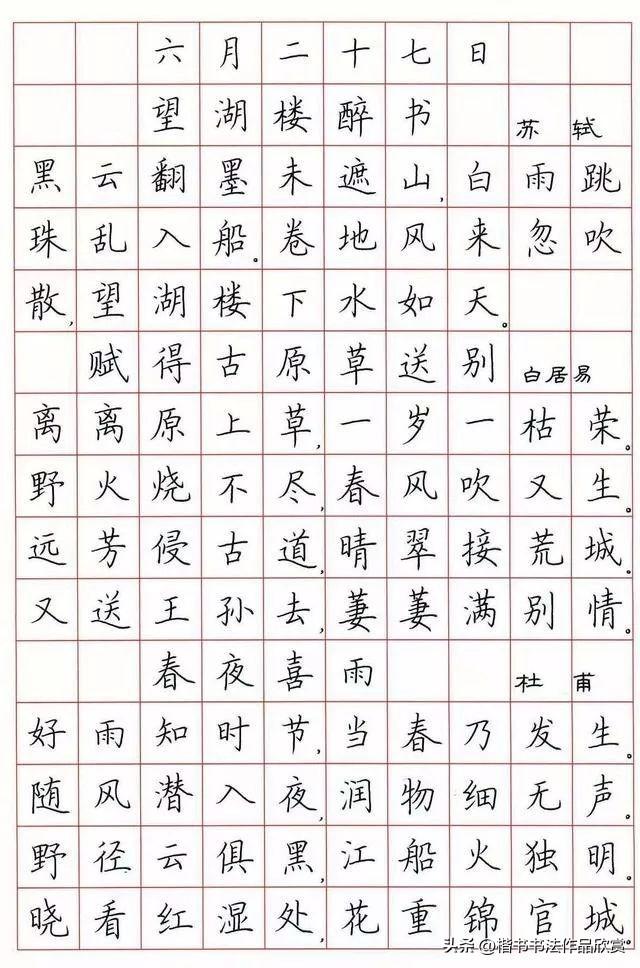 六月二十七日
望湖楼醉书 苏轼
黑云翻墨未遮山,白雨跳
珠乱入船。卷地风来忽吹
散,望湖楼下水如天。
赋得古原草送别 白居易
离离原上草,一岁一枯荣。
野火烧不尽,春风吹又生。
远芳侵古道,晴翠接荒城。
又送王孙去,萋萋满别情。
春夜喜雨 杜甫
好雨知时节,当春乃发生。
随风潜入夜,润物细无声。
野径云俱黑,江船火独明。
晓看红湿处,花重锦官城。
头条 @楷书书法作品欣赏